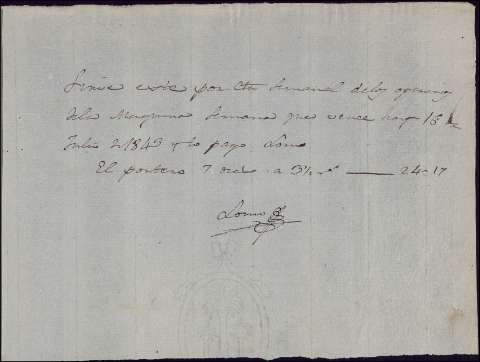 Sirve este por Cta semanal de los operarios
de la Maquina semana que vence hoy 15 de
Julio de 1843 y lo pago Lomo
El portero 7 dias a 3½ rs 24-17
Lomo